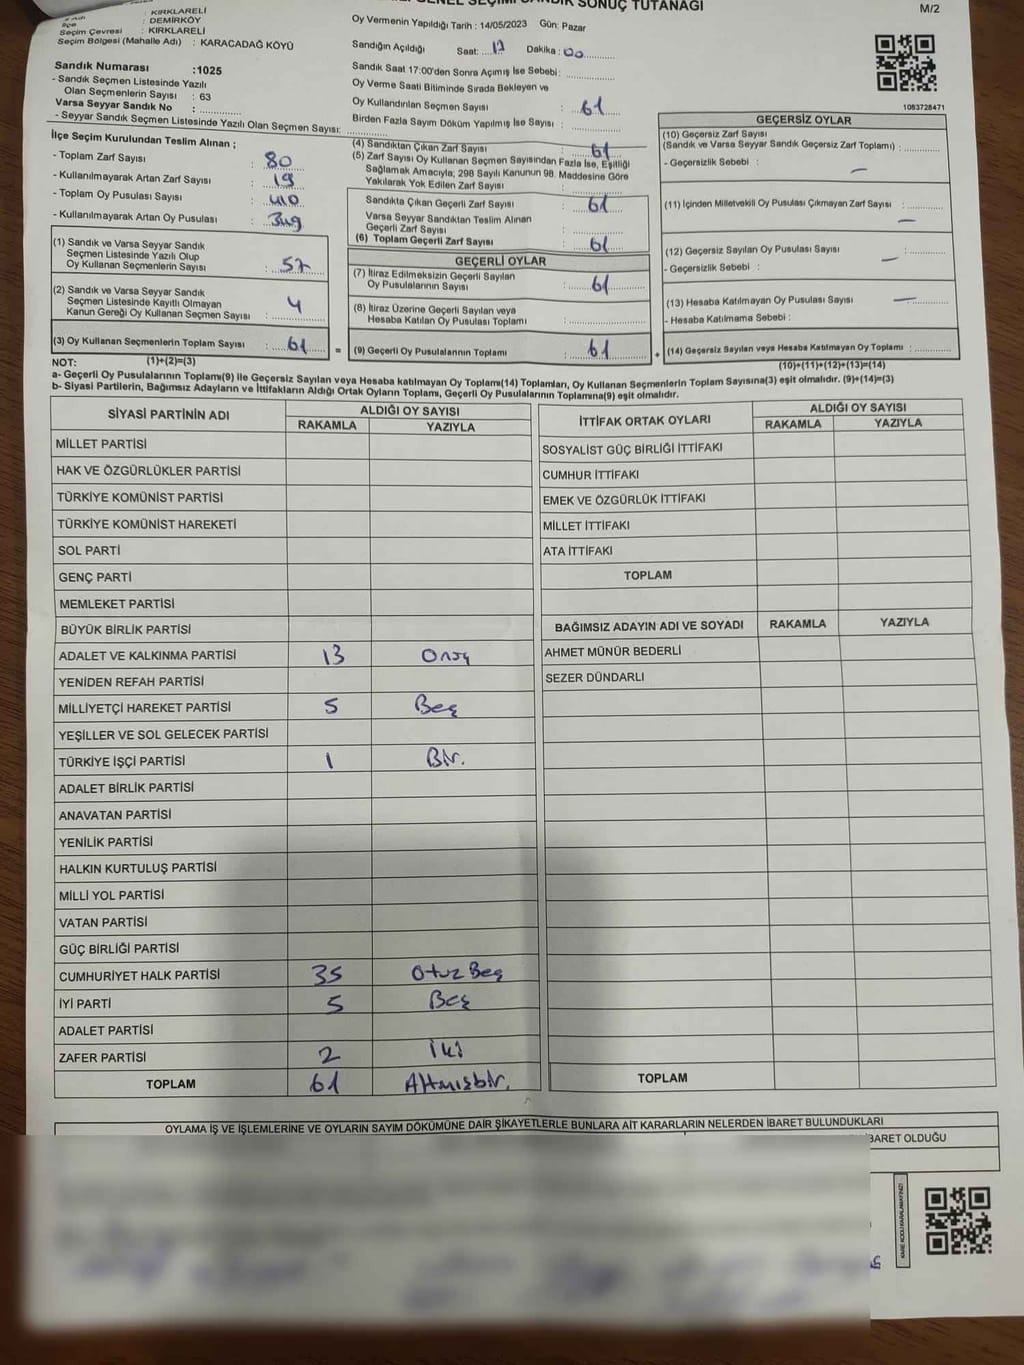 GENEL SEÇİMİ SANDIK SONUÇ TUTANAĞI
M/2
: KIRKLARELİ
İlçe : DEMİRKÖY
Seçim Çevresi : KIRKLARELİ
Seçim Bölgesi (Mahalle Adı) : KARACADAĞ KÖYÜ
Sandık Numarası :1025
- Sandık Seçmen Listesinde Yazılı
Olan Seçmenlerin Sayısı : 63
Varsa Seyyar Sandık No :
- Seyyar Sandık Seçmen Listesinde Yazılı Olan Seçmen Sayısı:
İlçe Seçim Kurulundan Teslim Alınan ;
- Toplam Zarf Sayısı : 80
- Kullanılmayarak Artan Zarf Sayısı : 19
- Toplam Oy Pusulası Sayısı : 410
- Kullanılmayarak Artan Oy Pusulası : 349
(1) Sandık ve Varsa Seyyar Sandık
Seçmen Listesinde Yazılı Olup
Oy Kullanan Seçmenlerin Sayısı : 57
(2) Sandık ve Varsa Seyyar Sandık
Seçmen Listesinde Kayıtlı Olmayan
Kanun Gereği Oy Kullanan Seçmen Sayısı : 4
(3) Oy Kullanan Seçmenlerin Toplam Sayısı : 61
Oy Vermenin Yapıldığı Tarih : 14/05/2023 Gün: Pazar
Sandığın Açıldığı Saat: 17 Dakika : 00
Sandık Saat 17:00'den Sonra Açımış İse Sebebi:
Oy Verme Saati Bitiminde Sırada Bekleyen ve
Oy Kullandırılan Seçmen Sayısı : 61
Birden Fazla Sayım Döküm Yapılmış İse Sayısı :
(4) Sandıktan Çıkan Zarf Sayısı : 61
(5) Zarf Sayısı Oy Kullanan Seçmen Sayısından Fazla İse, Eşitliği
Sağlamak Amacıyla; 298 Sayılı Kanunun 98. Maddesine Göre
Yakılarak Yok Edilen Zarf Sayısı :
Sandıkta Çıkan Geçerli Zarf Sayısı : 61
Varsa Seyyar Sandıktan Teslim Alınan
Geçerli Zarf Sayısı :
(6) Toplam Geçerli Zarf Sayısı : 61
GEÇERLİ OYLAR
(7) İtiraz Edilmeksizin Geçerli Sayılan
Oy Pusulalarının Sayısı : 61
(8) İtiraz Üzerine Geçerli Sayılan veya
Hesaba Katılan Oy Pusulası Toplamı :
= (9) Geçerli Oy Pusulalarının Toplamı : 61
1083728471
GEÇERSİZ OYLAR
(10) Geçersiz Zarf Sayısı
(Sandık ve Varsa Seyyar Sandık Geçersiz Zarf Toplamı) :
- Geçersizlik Sebebi : —
(11) İçinden Milletvekili Oy Pusulası Çıkmayan Zarf Sayısı : —
(12) Geçersiz Sayılan Oy Pusulası Sayısı : —
- Geçersizlik Sebebi :
(13) Hesaba Katılmayan Oy Pusulası Sayısı : —
- Hesaba Katılmama Sebebi :
+ (14) Geçersiz Sayılan veya Hesaba Katılmayan Oy Toplamı :
NOT: (1)+(2)=(3) (10)+(11)+(12)+(13)=(14)
a- Geçerli Oy Pusulalarının Toplamı(9) ile Geçersiz Sayılan veya Hesaba katılmayan Oy Toplamı(14) Toplamları, Oy Kullanan Seçmenlerin Toplam Sayısına(3) eşit olmalıdır. (9)+(14)=(3)
b- Siyasi Partilerin, Bağımsız Adayların ve İttifakların Aldığı Ortak Oyların Toplamı, Geçerli Oy Pusulalarının Toplamına(9) eşit olmalıdır.
SİYASİ PARTİNİN ADI ALDIĞI OY SAYISI
RAKAMLA YAZIYLA
MİLLET PARTİSİ
HAK VE ÖZGÜRLÜKLER PARTİSİ
TÜRKİYE KOMÜNİST PARTİSİ
TÜRKİYE KOMÜNİST HAREKETİ
SOL PARTİ
GENÇ PARTİ
MEMLEKET PARTİSİ
BÜYÜK BİRLİK PARTİSİ
ADALET VE KALKINMA PARTİSİ 13 Onüç
YENİDEN REFAH PARTİSİ
MİLLİYETÇİ HAREKET PARTİSİ 5 Beş
YEŞİLLER VE SOL GELECEK PARTİSİ
TÜRKİYE İŞÇİ PARTİSİ 1 Bir.
ADALET BİRLİK PARTİSİ
ANAVATAN PARTİSİ
YENİLİK PARTİSİ
HALKIN KURTULUŞ PARTİSİ
MİLLİ YOL PARTİSİ
VATAN PARTİSİ
GÜÇ BİRLİĞİ PARTİSİ
CUMHURİYET HALK PARTİSİ 35 Otuz Beş
İYİ PARTİ 5 Beş
ADALET PARTİSİ
ZAFER PARTİSİ 2 İki
TOPLAM 61 Altmışbir.
İTTİFAK ORTAK OYLARI ALDIĞI OY SAYISI
RAKAMLA YAZIYLA
SOSYALİST GÜÇ BİRLİĞİ İTTİFAKI
CUMHUR İTTİFAKI
EMEK VE ÖZGÜRLÜK İTTİFAKI
MİLLET İTTİFAKI
ATA İTTİFAKI
TOPLAM
BAĞIMSIZ ADAYIN ADI VE SOYADI RAKAMLA YAZIYLA
AHMET MÜNÜR BEDERLİ
SEZER DÜNDARLI
TOPLAM
OYLAMA İŞ VE İŞLEMLERİNE VE OYLARIN SAYIM DÖKÜMÜNE DAİR ŞİKAYETLERLE BUNLARA AİT KARARLARIN NELERDEN İBARET BULUNDUKLARI
İBARET OLDUĞU
KARE KODU KARALAMAYINIZ!